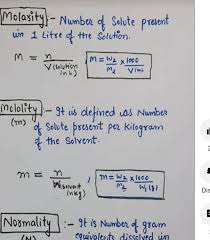 Molarity :- Number of Solute present
in 1 Litre of the Solution.
M = n / V(solution in L) , M = W₂/M₂ × 1000/V(ml)
Molality :- It is defined as Number
(m) of Solute present per Kilogram
of the Solvent.
m = n / Wsolvent (in kg) , m = W₂/M₂ × 1000/W₁(g)
Normality :- It is Number of gram
(N) equivalents dissolved in